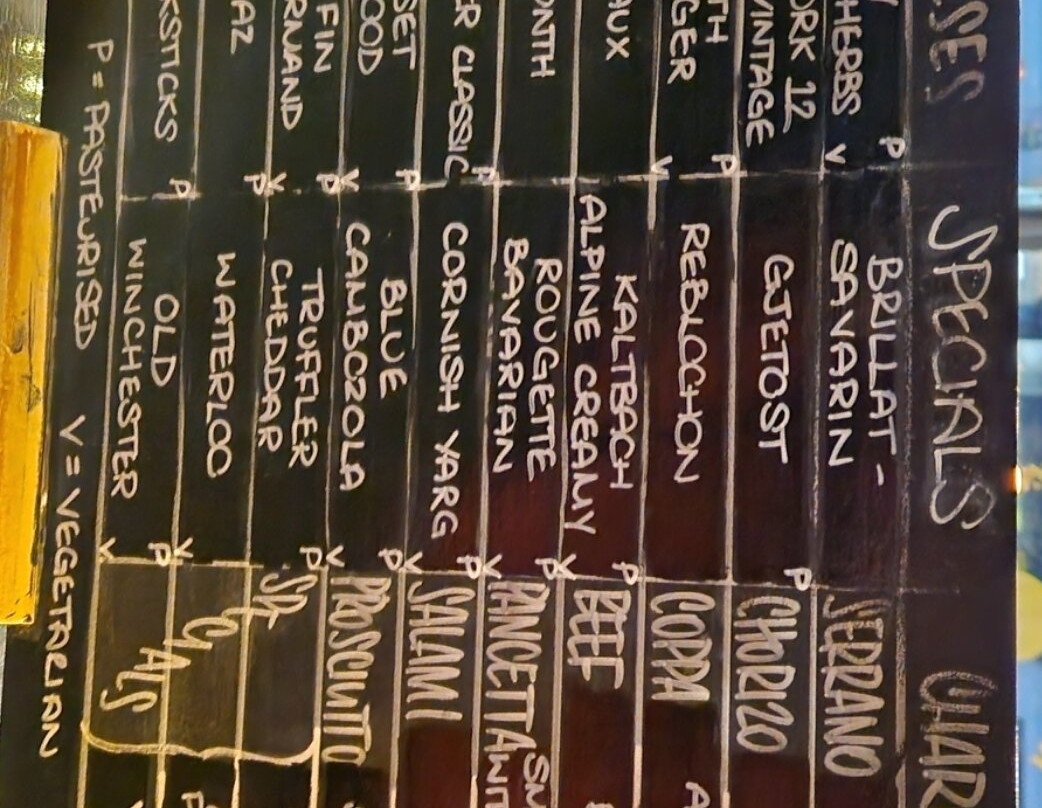 SES
HERBS P
V
ORK 12
VINTAGE
TH P
GER V
AUX
ONTH
ER CLASSIC P
SET P
OOD V
FIN P
RNAND V
AZ P
KSTICKS P
SPECIALS
BRILLAT-
SAVARIN
GJETOST P
REBLOCHON
KALTBACH P
ALPINE CREAMY V
ROUGETTE P
BAVARIAN V
CORNISH YARG P
V
BLUE P
CAMBOZOLA V
TRUFFLER P
CHEDDAR
WATERLOO V
OLD P
WINCHESTER V
CHAR
SERRANO
CHORIZO
COPPA
BEEF
PANCETTA
SALAMI
PROSCIUTTO
SPECIALS
P = PASTEURISED V = VEGETARIAN